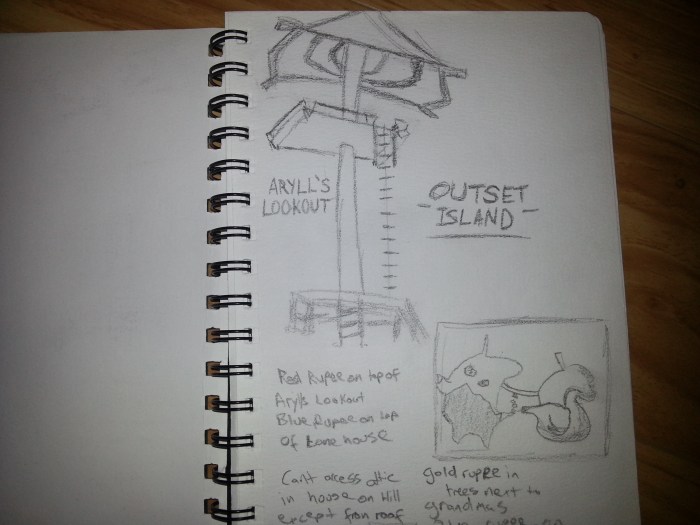 ARYLL'S
LOOKOUT
OUTSET
- ISLAND -
Red Rupee on top of
Arylls Lookout
Blue Rupee on top
of bone house
Can't access attic
in house on Hill
except from roof
gold rupee in
trees next to
grandmas